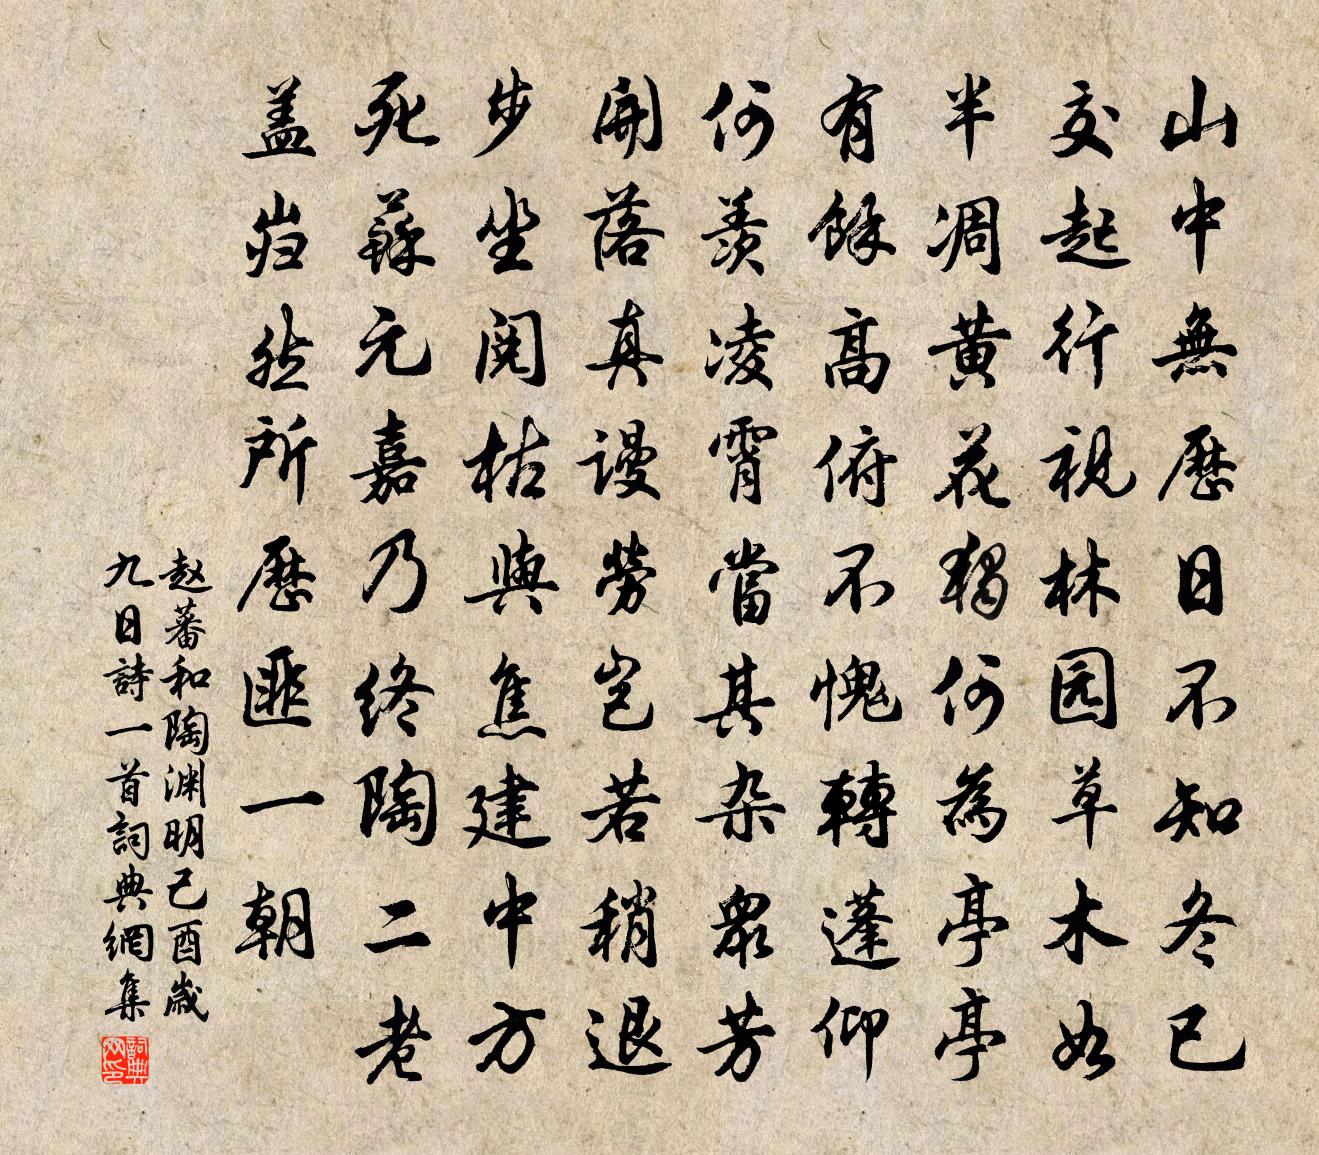 山中無歷日不知冬已
交起行視林园草木如
半凋黄花獨何為亭亭
有餘高俯不愧轉蓬仰
何羨凌霄當其杂衆芳
開落真謾勞豈若稍退
步坐閱枯與焦建中方
死蘇元嘉乃终陶二老
盖岿然所歷匪一朝
赵蕃和陶渊明己酉歲
九日詩一首詞典網集
詞典
网印